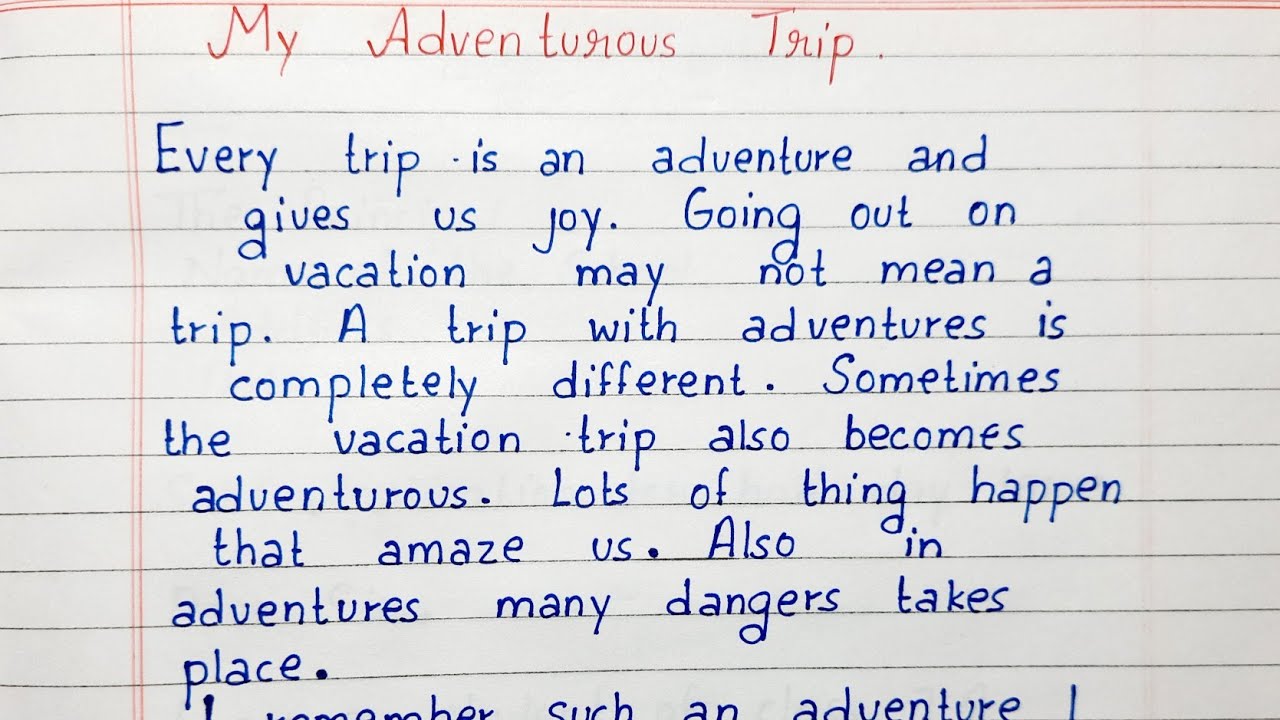 My Adventurous Trip.
Every trip is an adventure and
gives us joy. Going out on
vacation may not mean a
trip. A trip with adventures is
completely different. Sometimes
the vacation trip also becomes
adventurous. Lots of thing happen
that amaze us. Also in
adventures many dangers takes
place.
I remember such an adventure I